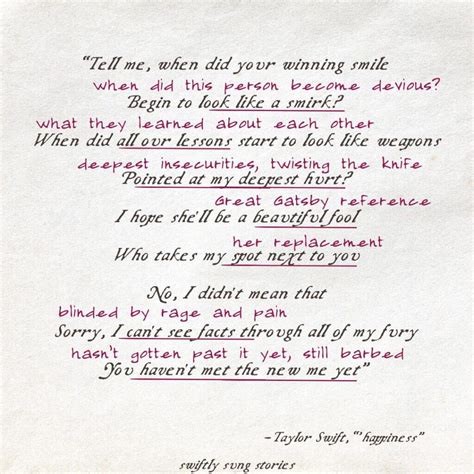 “Tell me, when did your winning smile
when did this person become devious?
Begin to look like a smirk?
what they learned about each other
When did all our lessons start to look like weapons
deepest insecurities, twisting the knife
Pointed at my deepest hurt?
Great Gatsby reference
I hope she'll be a beautiful fool
her replacement
Who takes my spot next to you
No, I didn't mean that
blinded by rage and pain
Sorry, I can't see facts through all of my fury
hasn't gotten past it yet, still barbed
You haven't met the new me yet”
-Taylor Swift, “'happiness”
swiftly sung stories